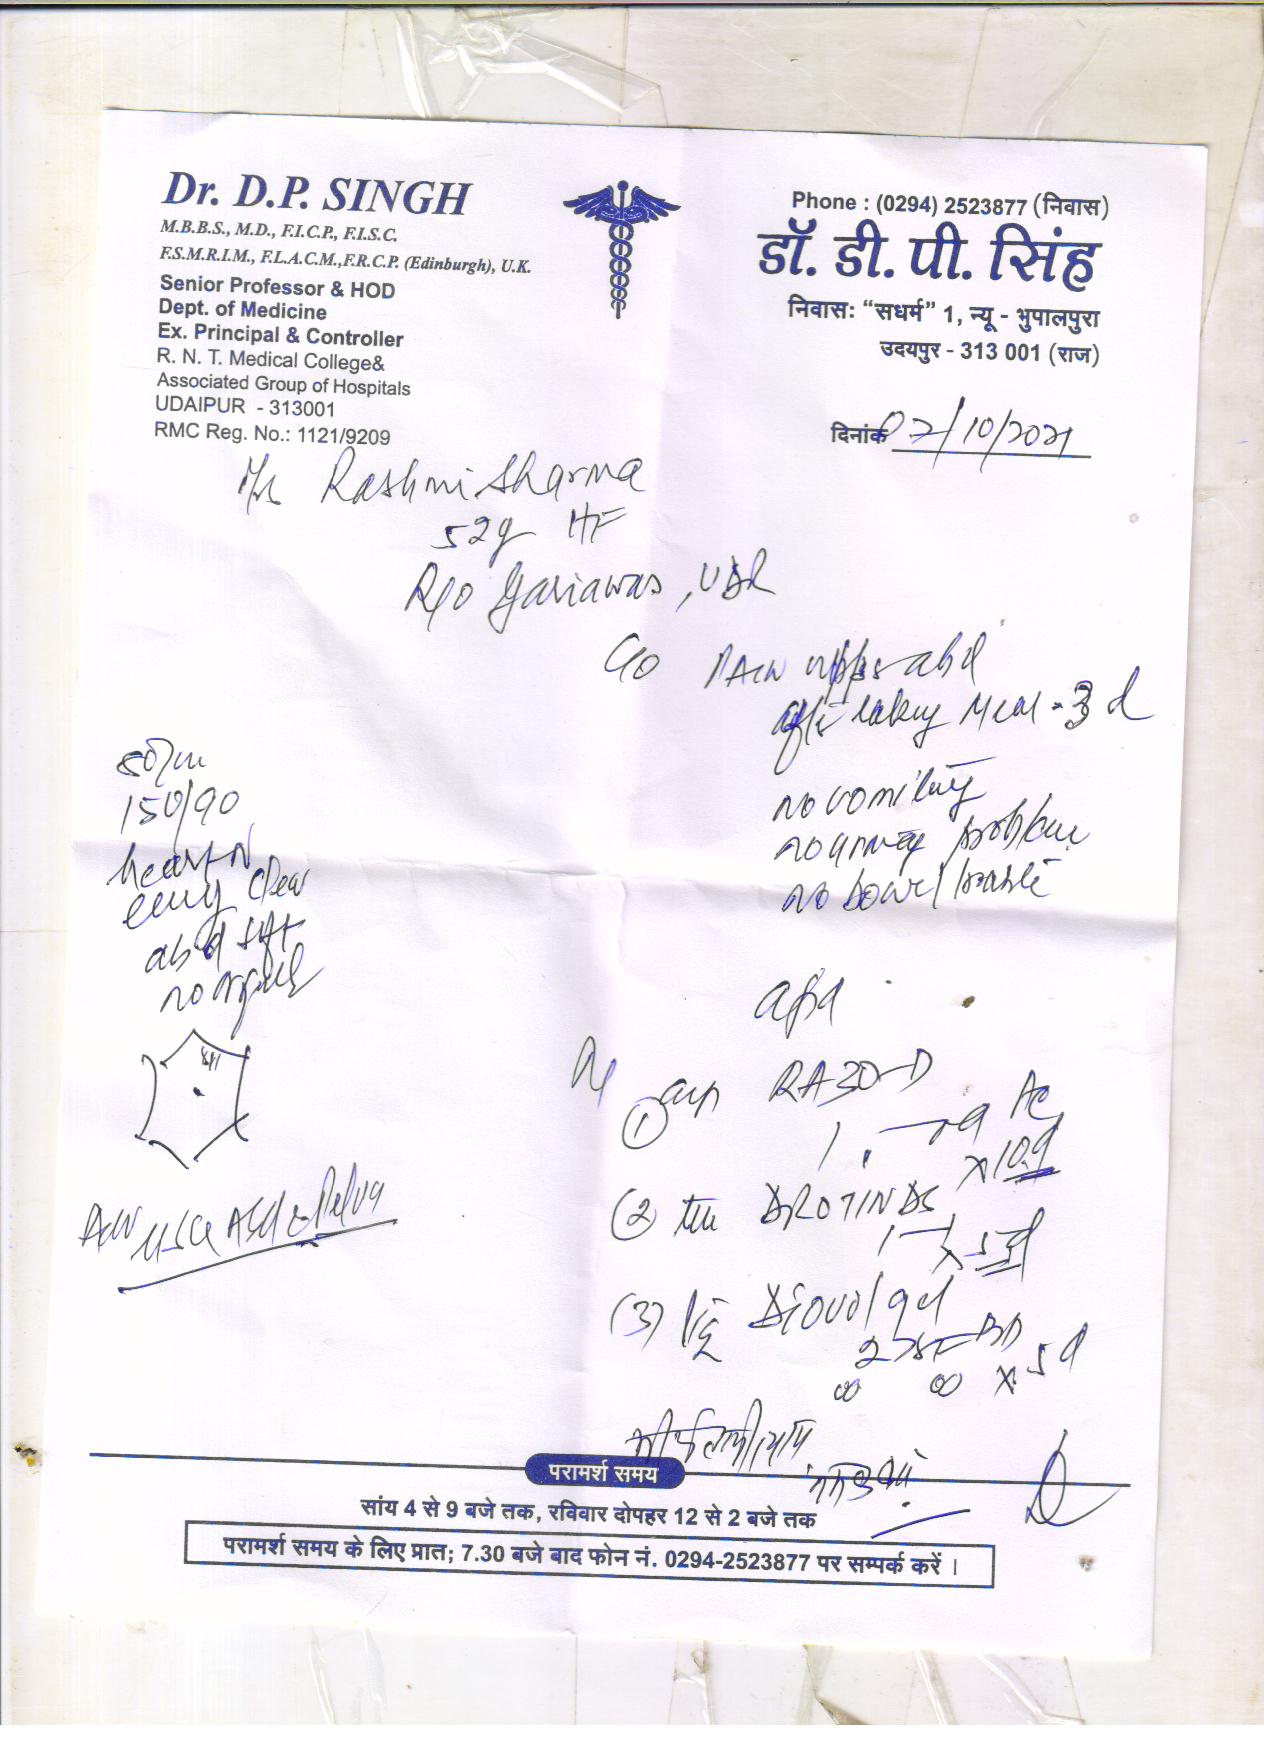 Dr. D.P. SINGH
M.B.B.S., M.D., F.I.C.P., F.I.S.C.
F.S.M.R.I.M., F.L.A.C.M.,F.R.C.P. (Edinburgh), U.K.
Senior Professor & HOD
Dept. of Medicine
Ex. Principal & Controller
R. N. T. Medical College&
Associated Group of Hospitals
UDAIPUR - 313001
RMC Reg. No.: 1121/9209
Phone : (0294) 2523877 (निवास)
डॉ. डी. पी. सिंह
निवासः “सधर्म” 1, न्यू - भुपालपुरा
उदयपुर - 313 001 (राज)
दिनांक 02/10/2021
Rashmi Sharma
52y HF
R/o Gariawas, UDR
C/o PAIN upper abd
after taking meal - 3 d
no vomiting
no problem
no bowel
80/m
150/90
heart N
clear
abd soft
Rx
(1) cap RAZO-D
1 AC
x 10 d
(2) DROTIN DS
1 5 d
(3) Diovol gel
2 TSF BD
x 5 d
Adv USG Abd & Pelvis
परामर्श समय
सांय 4 से 9 बजे तक, रविवार दोपहर 12 से 2 बजे तक
परामर्श समय के लिए प्रात; 7.30 बजे बाद फोन नं. 0294-2523877 पर सम्पर्क करें ।